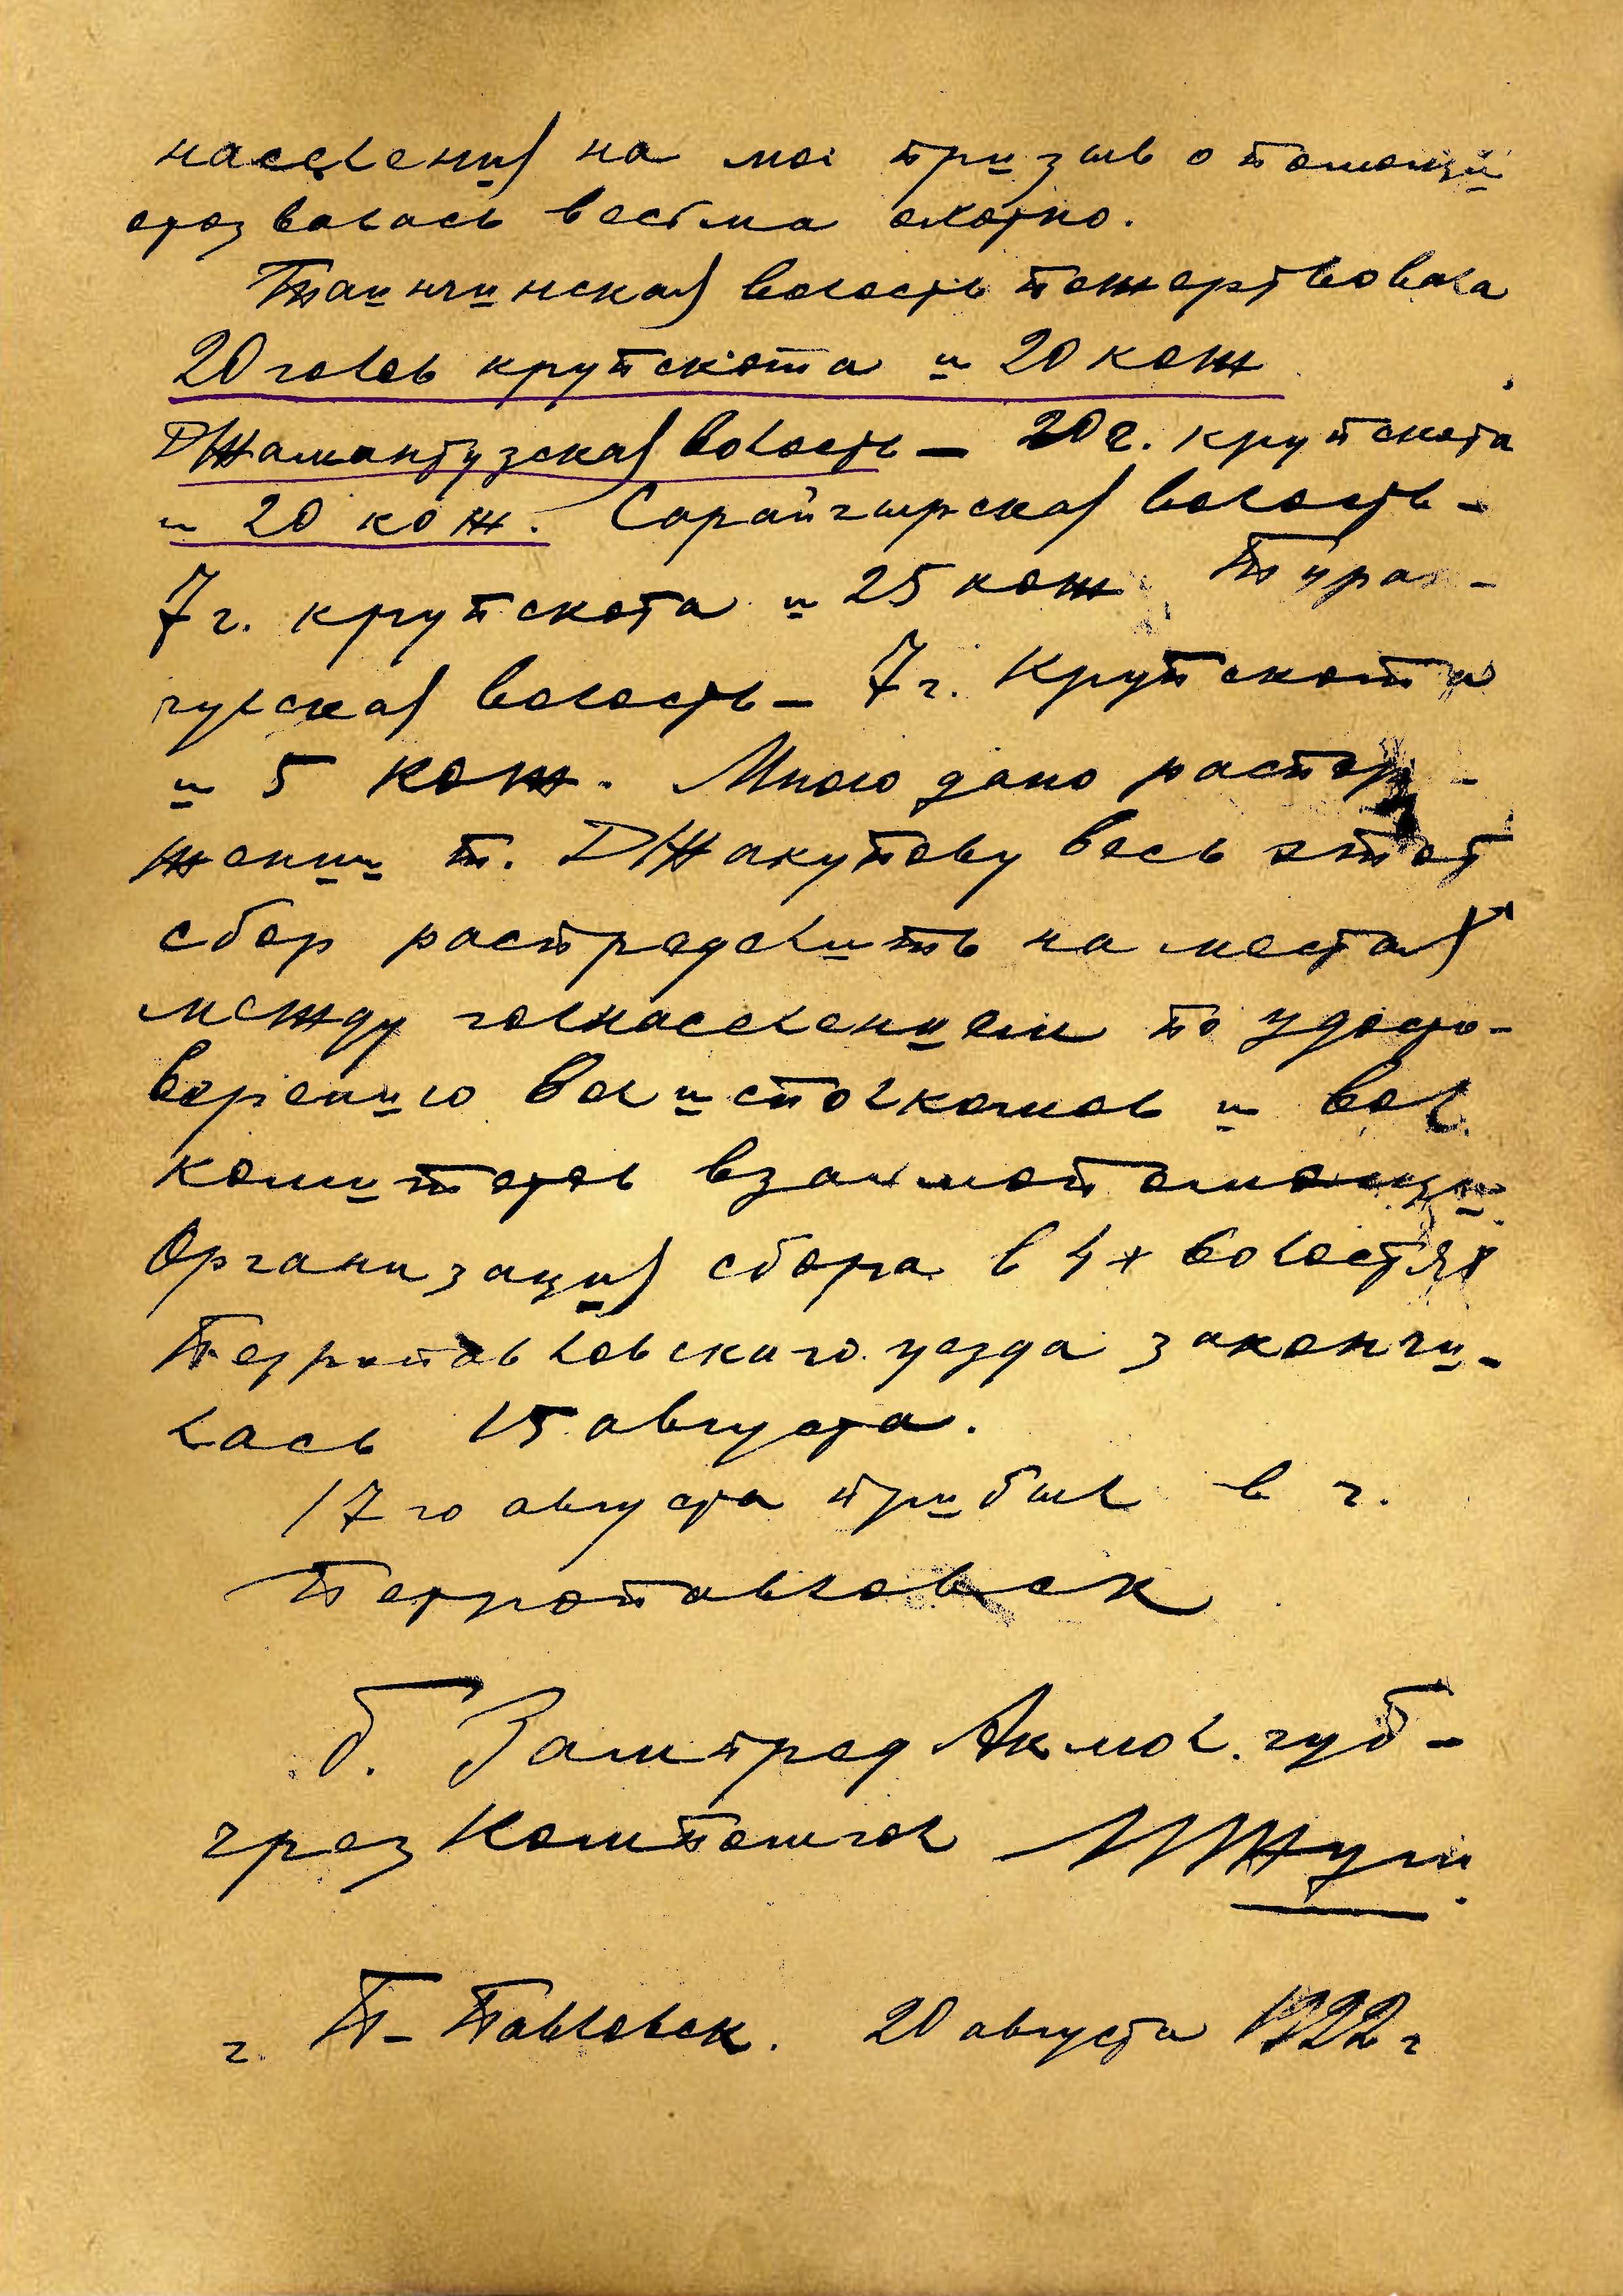 населения на мой призыв о помощи
отозвалась весьма охотно.
Таинчинская волость пожертвовала
20 голов крупскота и 20 кож
Джамантузская волость – 20 г. крупскота
и 20 кож. Сарайгырская волость –
7 г. крупскота и 25 кож Туран-
гульская волость – 7 г. крупскота
и 5 кож. Мною дано распор-
жении т. Джакупову весь этот
сбор распределить на местах
между голнаселением по удосто-
верению волисполкомов и вол
комитетов взаимопомощи
Организация сбора в 4х волостях
Петропавловского уезда закончи-
лась 15 августа.
17го августа прибыл в г.
Петропавловск
б. Зампред Акмол. губ-
грезкомпомгол
г. П-Павловск. 20 августа 1922 г